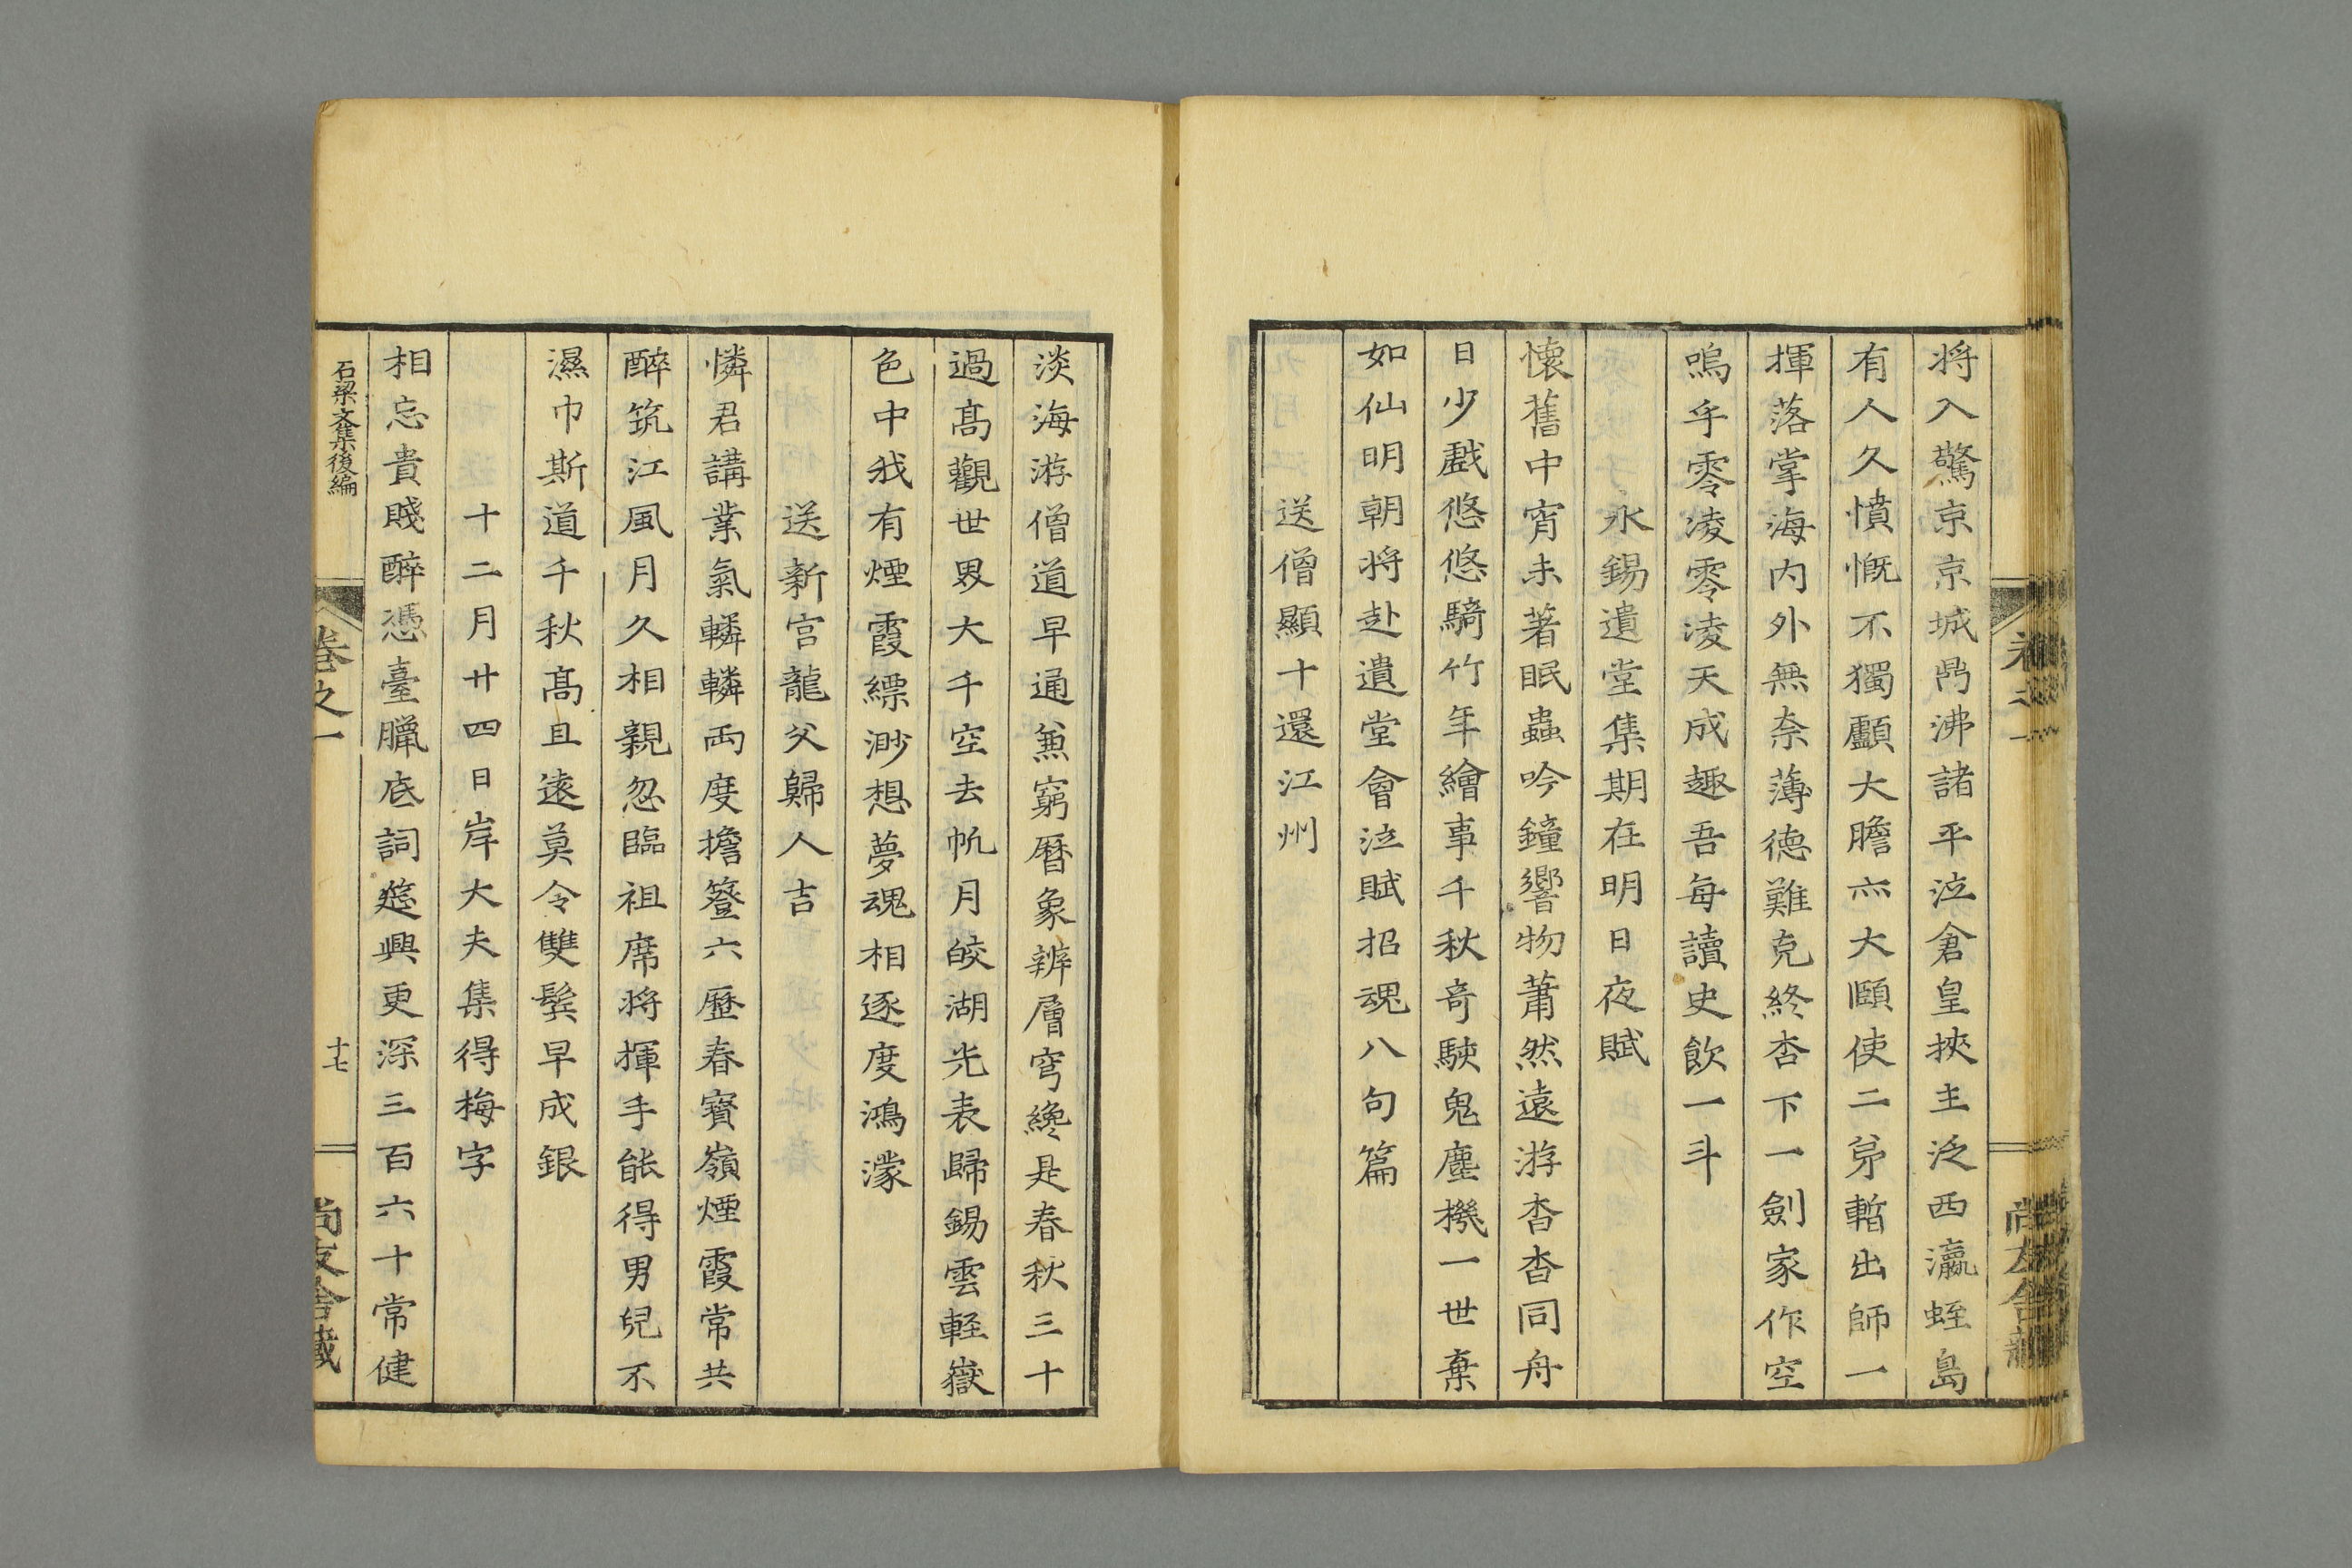 将入驚京京城鼎沸諸平泣倉皇挾主泛西瀛蛭島
有人久憤慨不獨顱大膽亦大頤使二弟暫出師一
揮落掌海内外無奈薄德難克終杏下一劍家作空
嗚乎零凌零凌天成趣吾每讀史飲一斗
永錫遺堂集期在明日夜賦
懷舊中宵未著眠蟲吟鐘響物蕭然遠游杳杳同舟
日少戲悠悠騎竹年繪事千秋奇駛鬼塵機一世棄
如仙明朝将赴遺堂會泣賦招魂八句篇
送僧顯十還江州
淡海游僧道早通兼窮曆象辨層穹纔是春秋三十
過高觀世界大千空去帆月皎湖光表歸錫雲輕嶽
色中我有煙霞縹渺想夢魂相逐度鴻濛
送新宮龍父歸人吉
憐君講業氣轔轔兩度擔簦六歷春寶嶺煙霞常共
醉筑江風月久相親忽臨祖席将揮手能得男兒不
濕巾斯道千秋高且遠莫令雙鬂早成銀
十二月廿四日岸大夫集得梅字
相忘貴賤醉憑臺臘底詞筵興更深三百六十常健
石梁文集後編
卷之一
十七
尚友舍藏